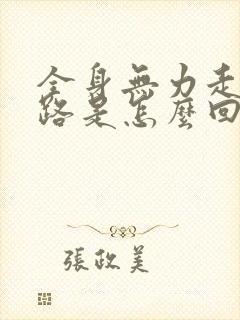 全身無力走
路是怎麼回
張政美